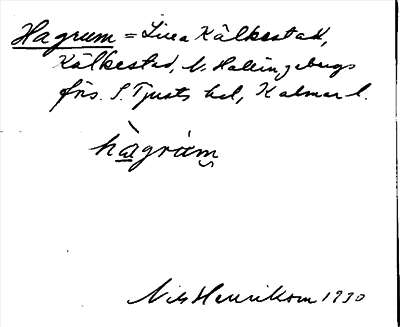 Hagrum = Lilla Kälkestad,
Kälkestad, V. Hallingebergs
förs. S. Tjusts hd, Kalmar l.
hàgrum
Nils Henrikson 1930